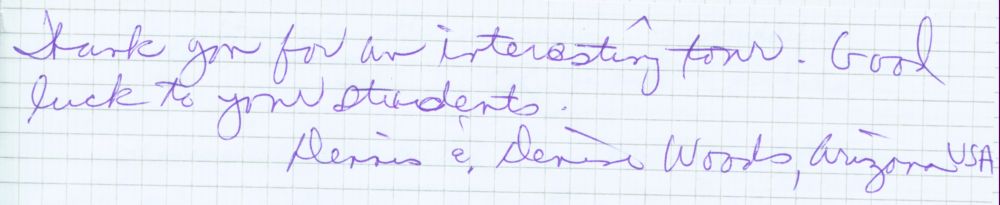 Thank you for an interesting tour. Good
luck to your students.
Dennis & Denise Woods, Arizona USA